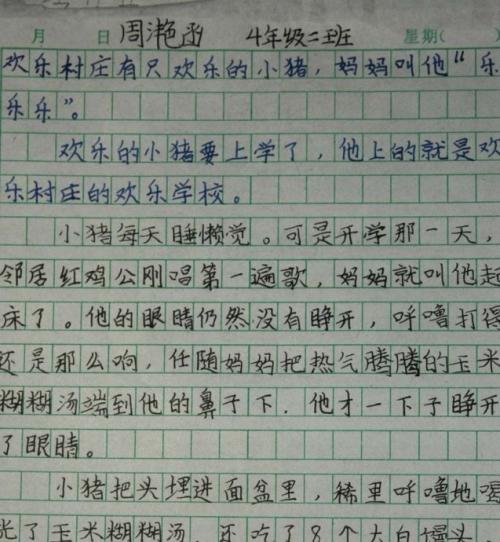 月 日 周滟函 4年级二班 星期(
欢乐村庄有只欢乐的小猪，妈妈叫他“乐
乐乐”。
欢乐的小猪要上学了，他上的就是欢
乐村庄的欢乐学校。
小猪每天睡懒觉。可是开学那一天，
邻居红鸡公刚唱第一遍歌，妈妈就叫他起
床了。他的眼睛仍然没有睁开，呼噜打得
还是那么响，任随妈妈把热气腾腾的玉米
糊糊汤端到他的鼻子下．他才一下子睁开
了眼睛。
小猪把头埋进面盆里，稀里呼噜地喝
光了玉米糊糊汤，还吃了8个大白馒头，